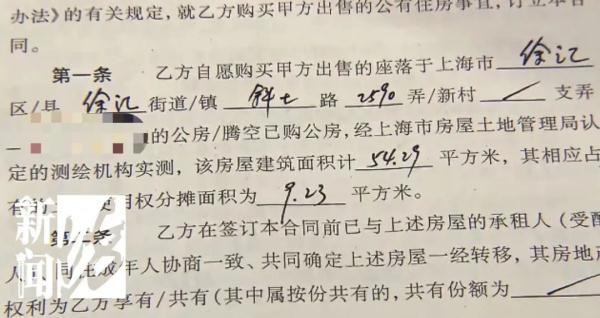 办法》的有关规定，就乙方购买甲方出售的公有住房事宜，订立本合
同。
第一条 乙方自愿购买甲方出售的座落于上海市 徐汇
区/县 徐汇 街道/镇 斜土 路 2590 弄/新村 / 支弄
的公房/腾空已购公房，经上海市房屋土地管理局认
定的测绘机构实测，该房屋建筑面积计 54.29 平方米，其相应占
有的 使用权分摊面积为 9.23 平方米。
第二条 乙方在签订本合同前已与上述房屋的承租人（受配
人 同住成年人协商一致、共同确定上述房屋一经转移，其房地产
权利为乙方享有/共有（其中属按份共有的，共有份额为 /
新闻